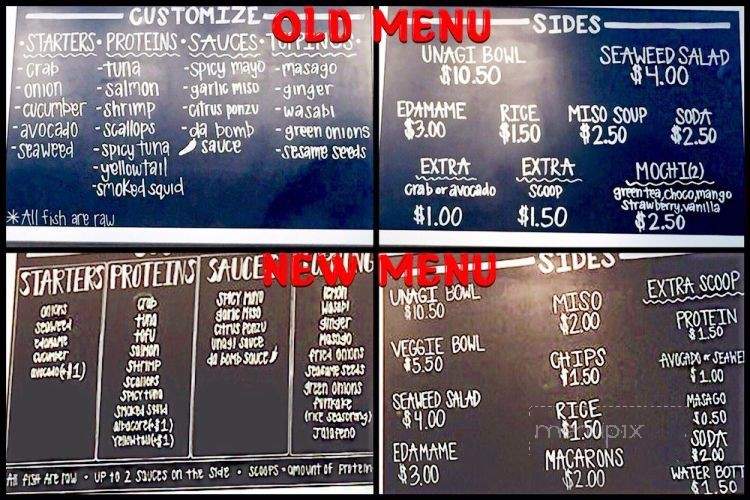 CUSTOMIZE
OLD MENU
STARTERS • PROTEINS • SAUCES • TOPPINGS
- crab
- onion
- cucumber
- avocado
- seaweed
- tuna
- salmon
- shrimp
- scallops
- spicy tuna
- yellowtail
- smoked squid
- spicy mayo
- garlic miso
- citrus ponzu
- da bomb
sauce
- masago
- ginger
- wasabi
- green onions
- sesame seeds
* All fish are raw
SIDES
UNAGI BOWL
$10.50
SEAWEED SALAD
$4.00
EDAMAME
$3.00
RICE
$1.50
MISO SOUP
$2.50
SODA
$2.50
EXTRA
crab or avocado
$1.00
EXTRA
SCOOP
$1.50
MOCHI(2)
green tea, choco, mango
strawberry, vanilla
$2.50
NEW MENU
STARTERS
onions
seaweed
edamame
cucumber
avocado(+$1)
PROTEINS
crab
tuna
tofu
salmon
shrimp
scallops
spicy tuna
smoked squid
albacore(+$1)
yellowtail(+$1)
SAUCE
spicy mayo
garlic miso
citrus ponzu
unagi sauce
da bomb sauce
lemon
wasabi
ginger
masago
fried onions
sesame seeds
green onions
furikake
(rice seasoning)
jalapeno
All fish are raw • up to 2 sauces on the side • scoops = amount of protein
SIDES
UNAGI BOWL
$10.50
VEGGIE BOWL
$5.50
SEAWEED SALAD
$4.00
EDAMAME
$3.00
MISO
$2.00
CHIPS
$1.50
RICE
$1.50
MACARONS
$2.00
EXTRA SCOOP
PROTEIN
$1.50
AVOCADO or SEAWE
$1.00
MASAGO
$0.50
SODA
$2.00
WATER BOTT
$1.50
menupix